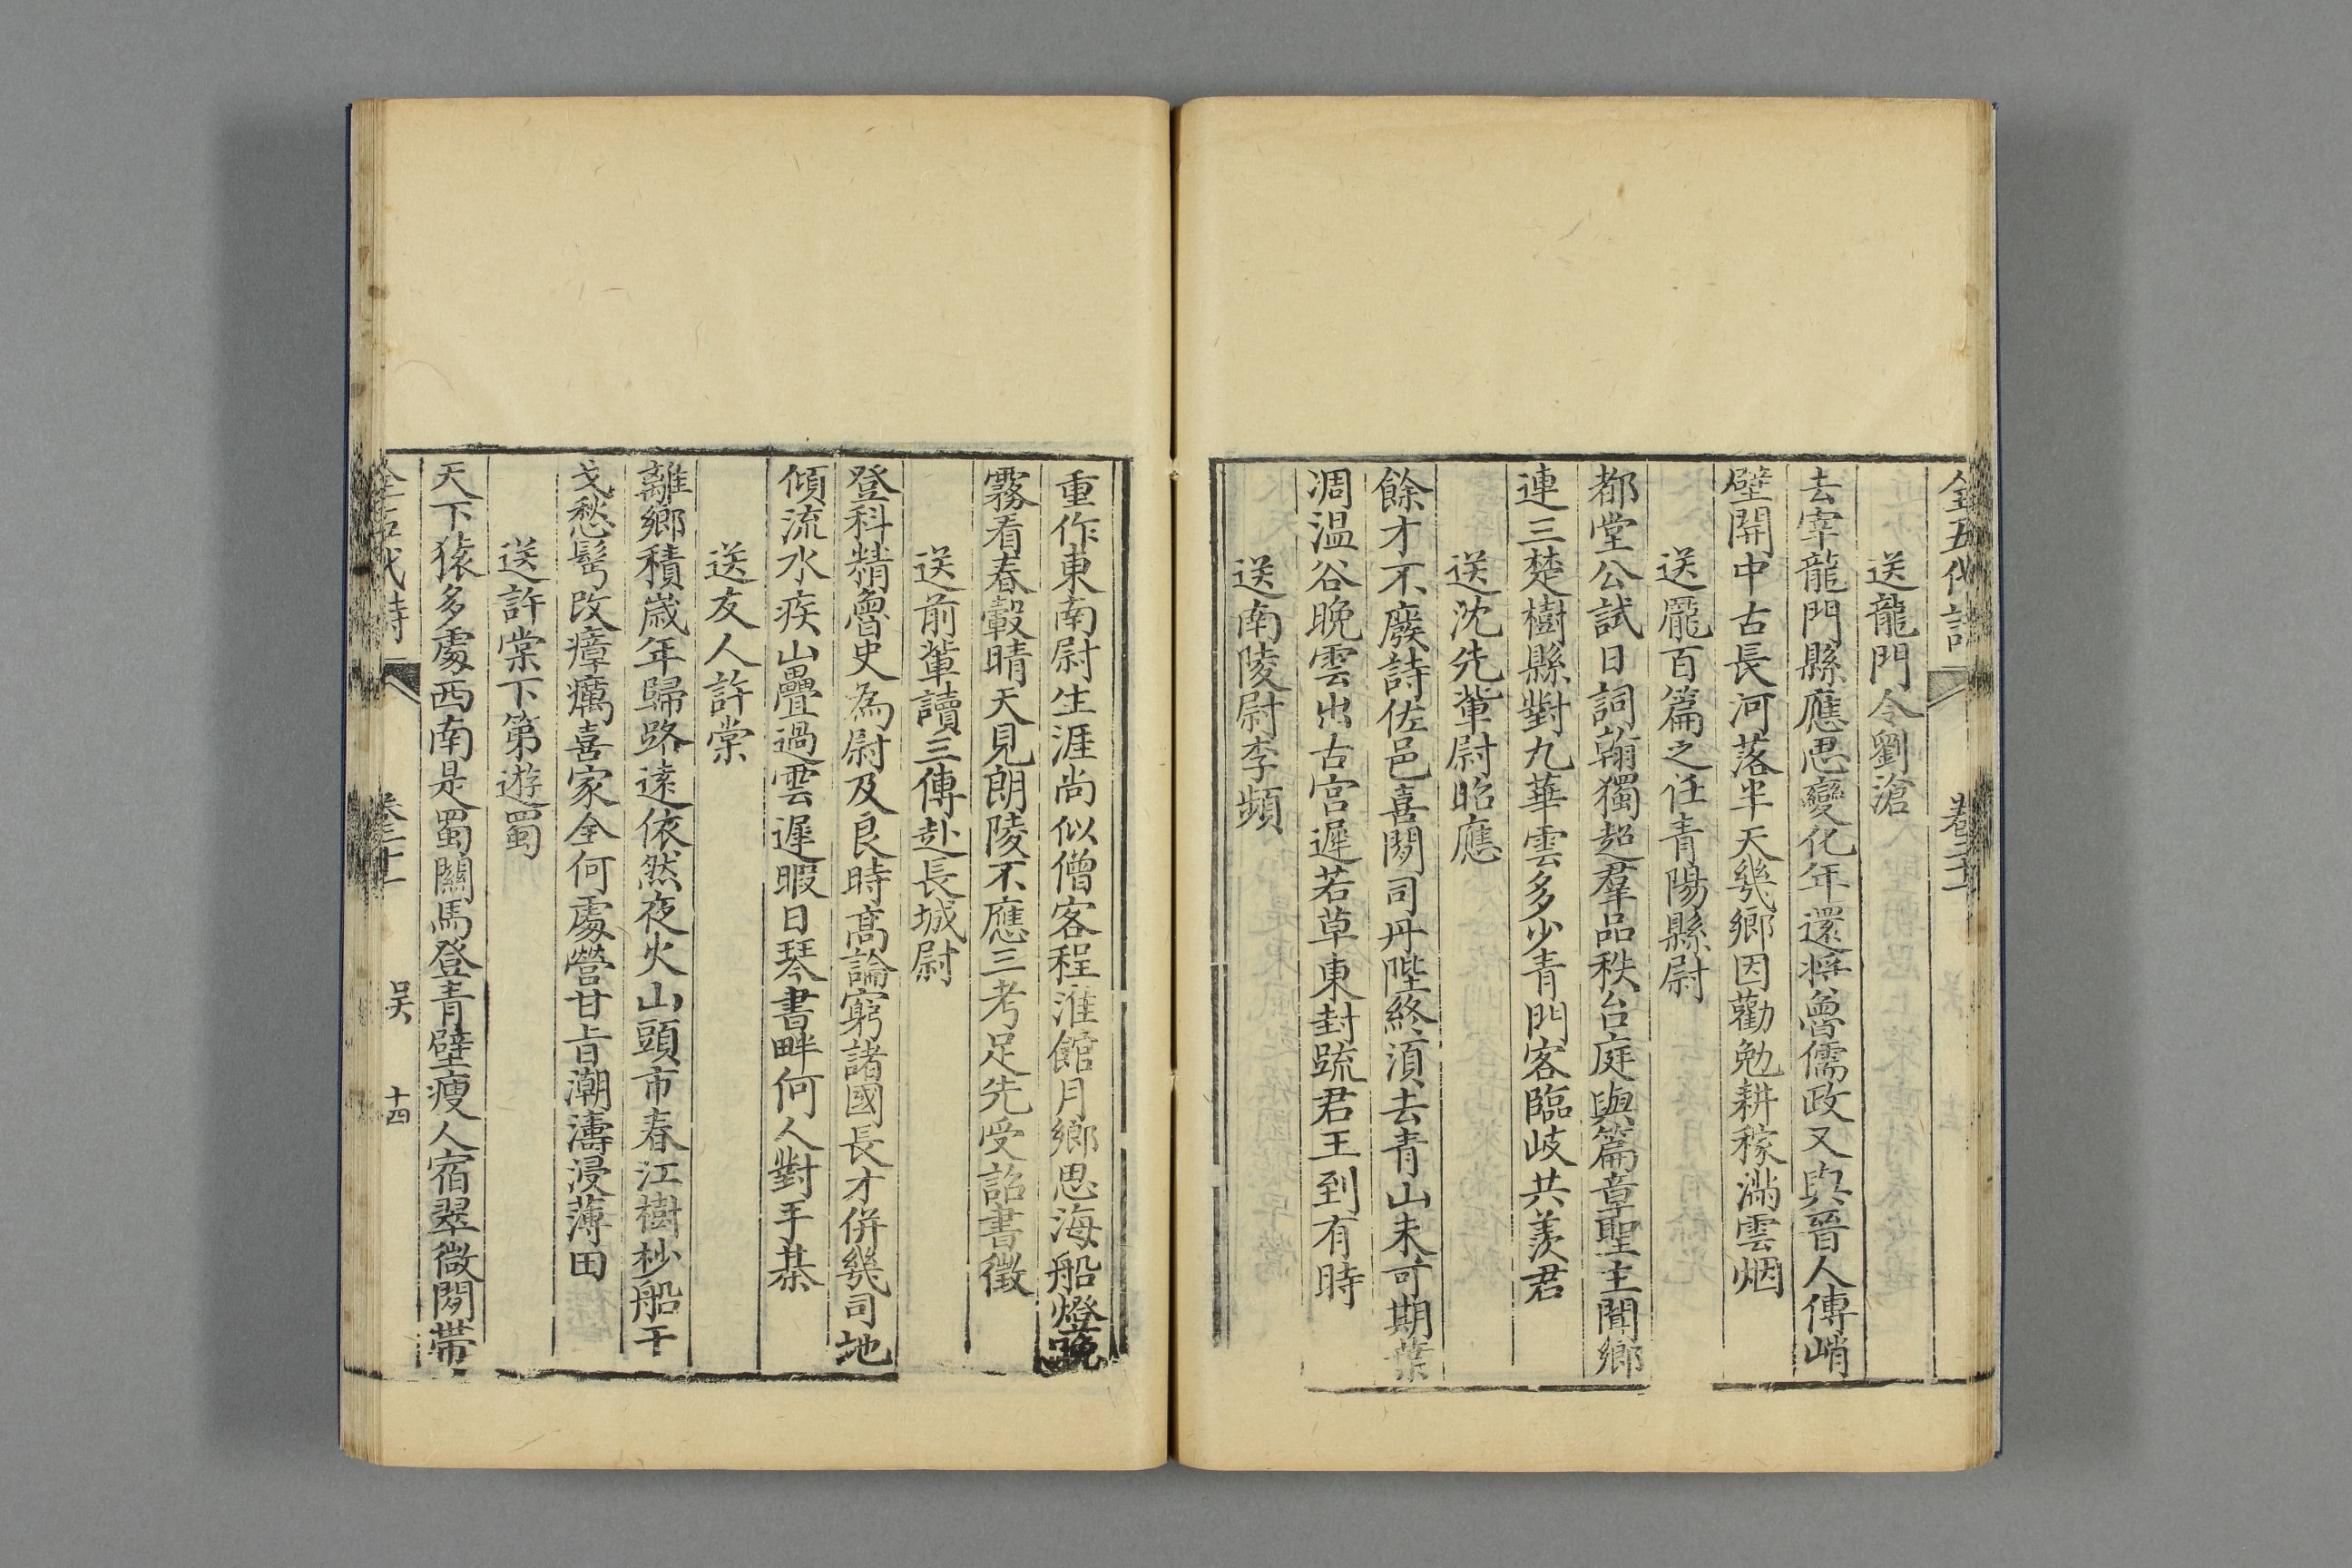 全五代詩 卷二十
送龍門令劉滄
去宰龍門縣應思變化年還將魯儒政又與晉人傳峭
壁開中古長河落半天幾鄉因勸勉耕稼滿雲烟
送龎百篇之任青陽縣尉
都堂公試日詞翰獨超羣品秩台庭與篇章聖主聞鄉
連三楚樹縣對九華雲多少青門客臨岐共羨君
送沈先輩尉昭應
餘才不廢詩佐邑喜閒司丹陛終須去青山未可期葉
凋温谷晚雲出古宮遲若草東封疏君王到有時
送南陵尉李頻
重作東南尉生涯尚似僧客程淮館月鄉思海船燈晚
霧看春轂晴天見朗陵不應三考足先受詔書徵
送前輩讀三傳赴長城尉
登科精魯史為尉及良時高論窮諸國長才併幾司地
傾流水疾山疊過雲遲暇日琴書畔何人對手棊
送友人許棠
離鄉積歲年歸路遠依然夜火山頭市春江樹杪船干
戈愁鬢改瘴癘喜家全何處營甘旨潮濤浸薄田
送許棠下第遊蜀
天下猿多處西南是蜀關馬登青壁瘦人宿翠微閒帶
全五代詩 卷二十 吴 十四